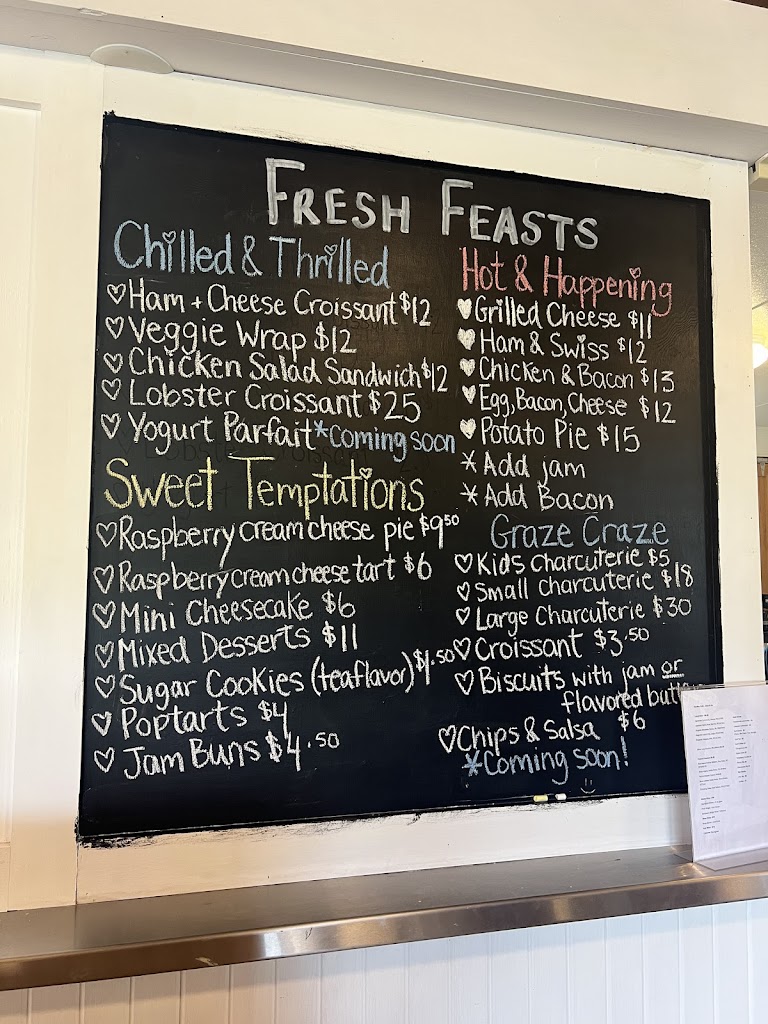 FRESH FEASTS
Chilled & Thrilled
Ham + Cheese Croissant $12
Veggie Wrap $12
Chicken Salad Sandwich $12
Lobster Croissant $25
Yogurt Parfait *coming soon
Sweet Temptations
Raspberry cream cheese pie $9.50
Raspberry cream cheese tart $6
Mini Cheesecake $6
Mixed Desserts $11
Sugar Cookies (tea flavor) $1.50
Poptarts $4
Jam Buns $4.50
Hot & Happening
Grilled Cheese $11
Ham & Swiss $12
Chicken & Bacon $13
Egg, Bacon, Cheese $12
Potato Pie $15
*Add jam
*Add Bacon
Graze Craze
Kids charcuterie $5
Small charcuterie $18
Large Charcuterie $30
Croissant $3.50
Biscuits with jam or
flavored butt
$6
Chips & Salsa
*Coming soon!